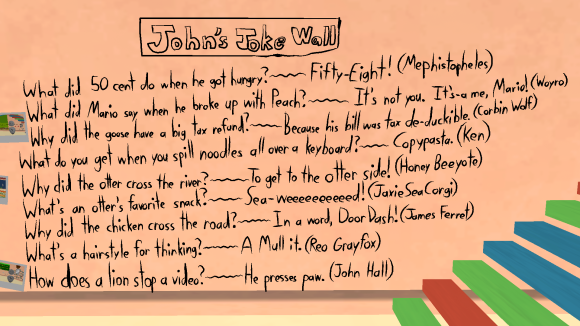 John's Joke Wall
What did 50 cent do when he got hungry?~~~ Fifty-Eight! (Mephistopheles)
What did Mario say when he broke up with Peach?~~~ It's not you. It's-a me, Mario! (Wayro)
Why did the goose have a big tax refund?~~~ Because his bill was tax de-duckible. (Corbin Wolf)
What do you get when you spill noodles all over a keyboard?~~~ Copypasta. (Ken)
Why did the otter cross the river?~~~ To get to the otter side! (Honey Beeyote)
What's an otter's favorite snack?~~~ Sea-weeeeeeeeeed! (JaxieSeaCorgi)
Why did the chicken cross the road?~~~ In a word, DoorDash! (James Ferret)
What's a hairstyle for thinking?~~~ A Mull it. (Reo Grayfox)
How does a lion stop a video?~~~ He presses paw. (John Hall)